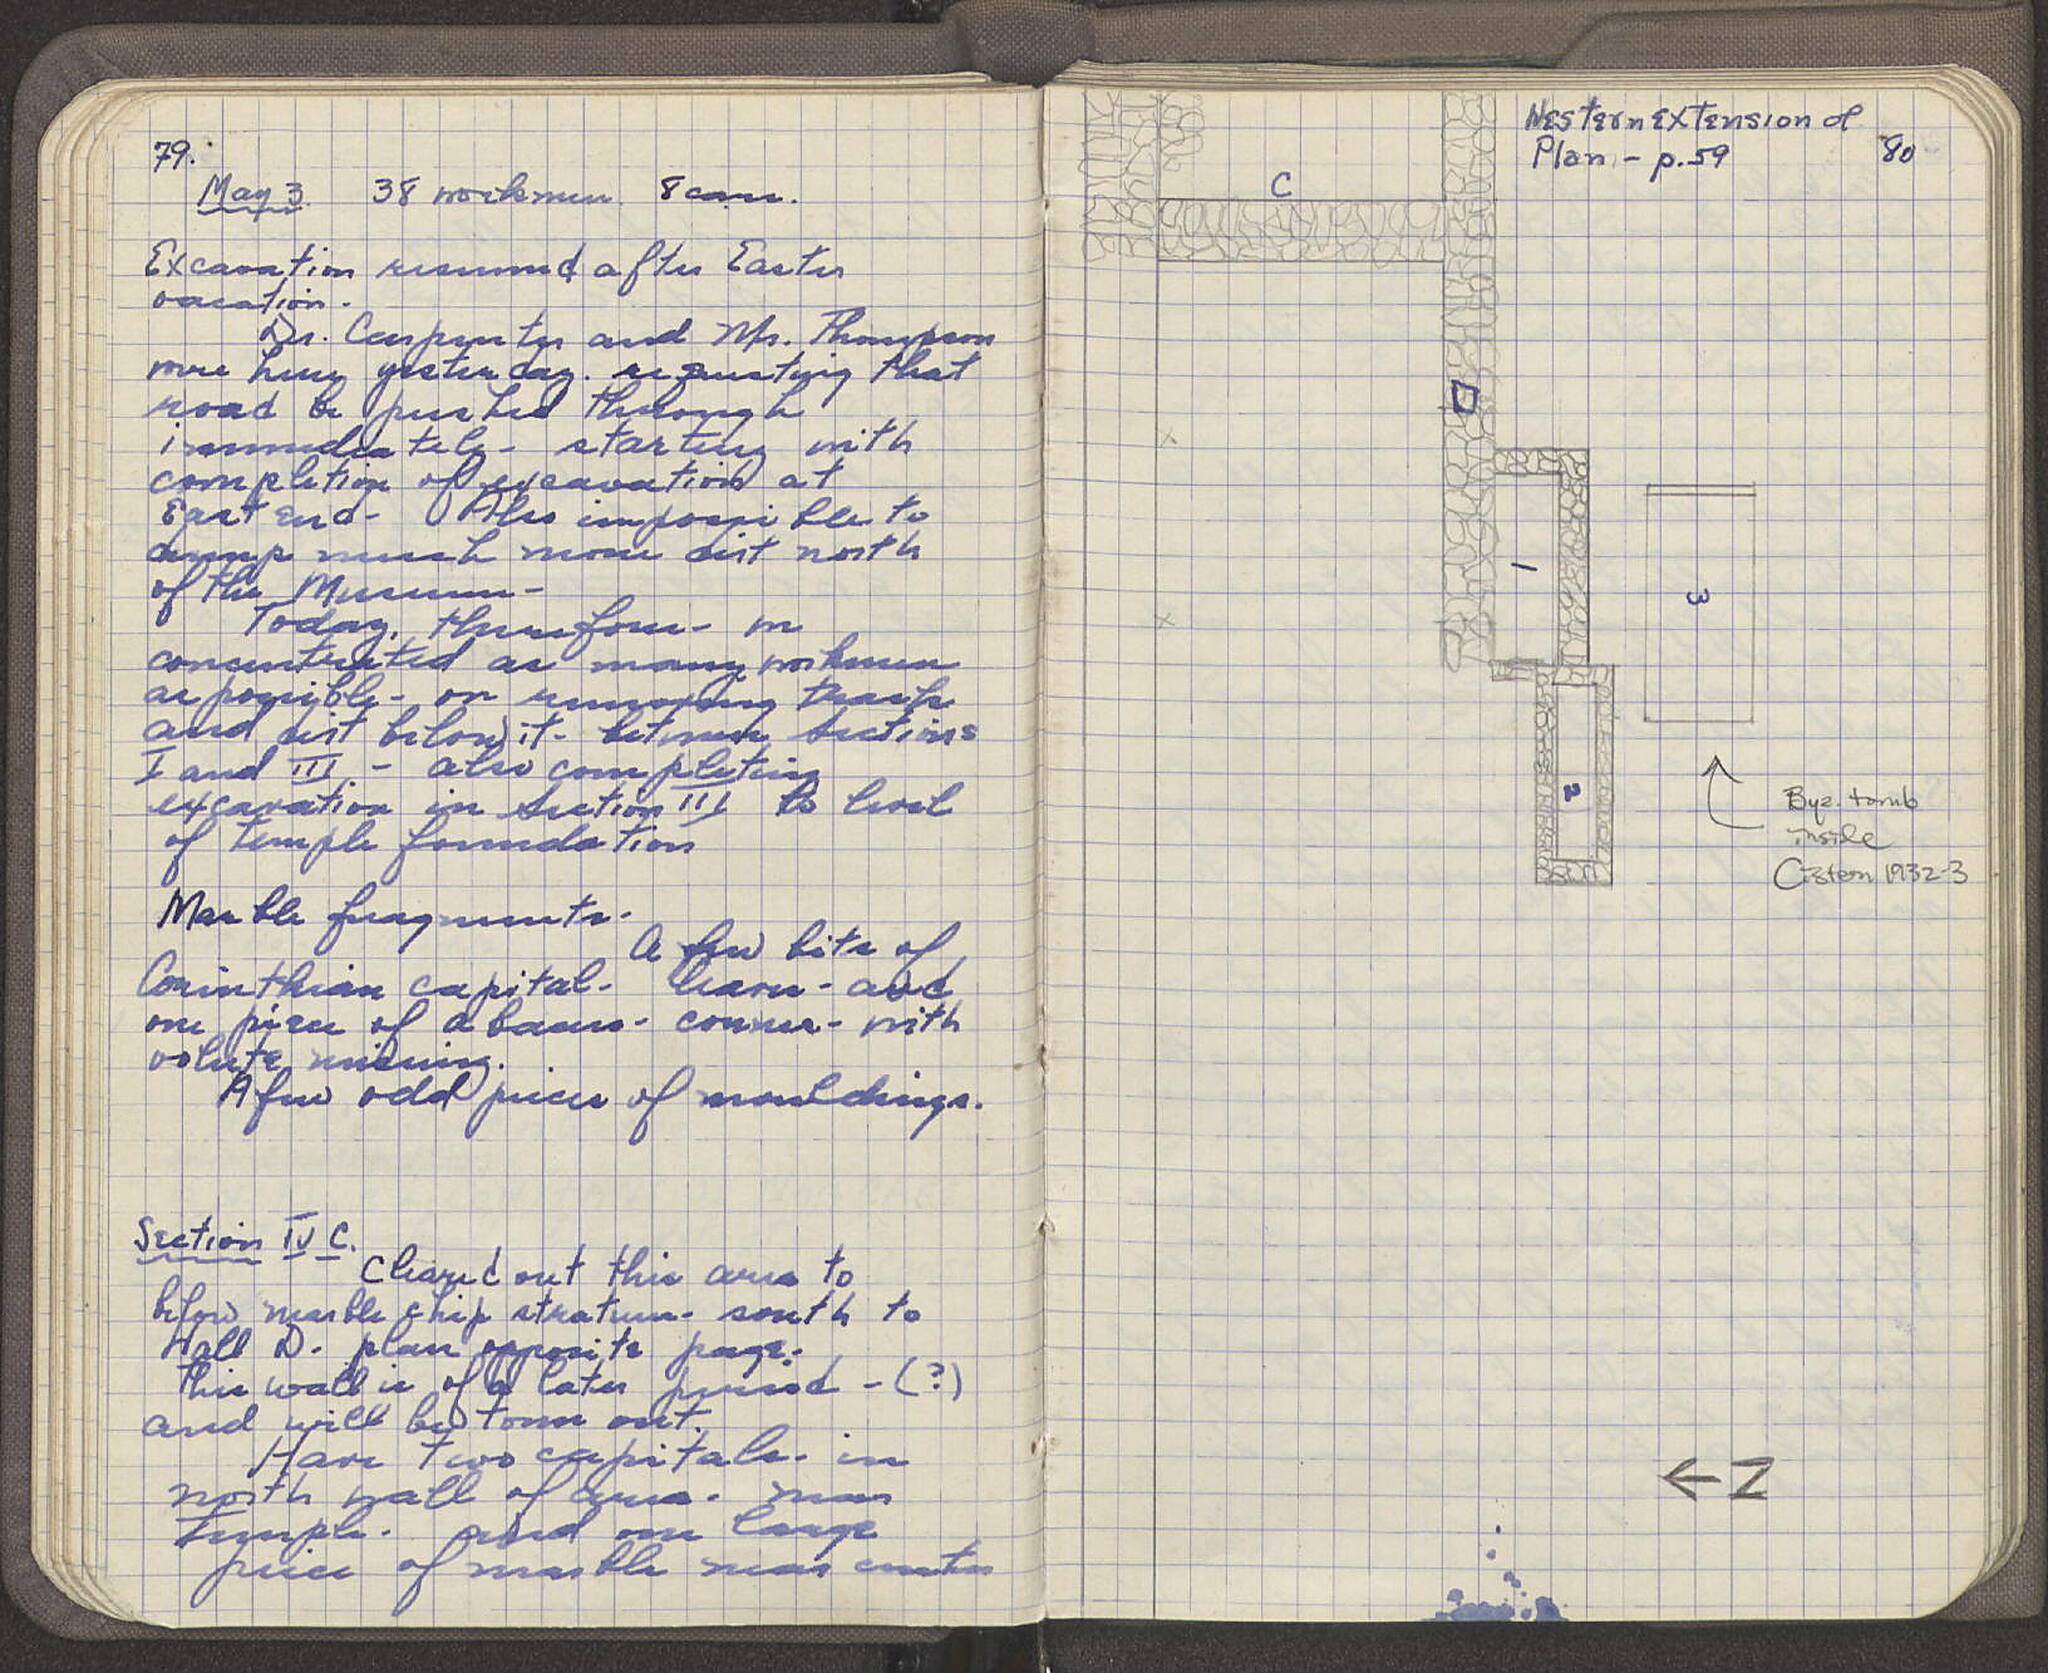 79.
May 3. 38 workmen. 8 cars.
Excavation resumed after Easter
vacation.
Dr. Carpenter and Mr. Thompson
were here yesterday. requesting that
road be pushed through
immediately - starting with
completion of excavation at
East end - Also impossible to
dump much more dirt north
of the Museum -
Today, therefore - we
concentrated as many workmen
as possible - on removing
and dirt below it - between Sections
I and III - also completing
excavation in Section III to level
of temple foundation
Marble fragments.
A few bits of
Corinthian capital - leaves - and
one piece of abacus - corner - with
volute missing.
A few odd pieces of mouldings.
Section IV C.
Cleared out this area to
below marble chip stratum - south to
Wall D. plan opposite page.
This wall is of a later period - (?)
and will be torn out.
Have two capitals - in
north wall of area - near
temple - and one large
piece of marble near center
Western Extension of
Plan - p. 59
80
C
D
1
3
2
Byz. tomb
inside
Cistern 1932-3
← N